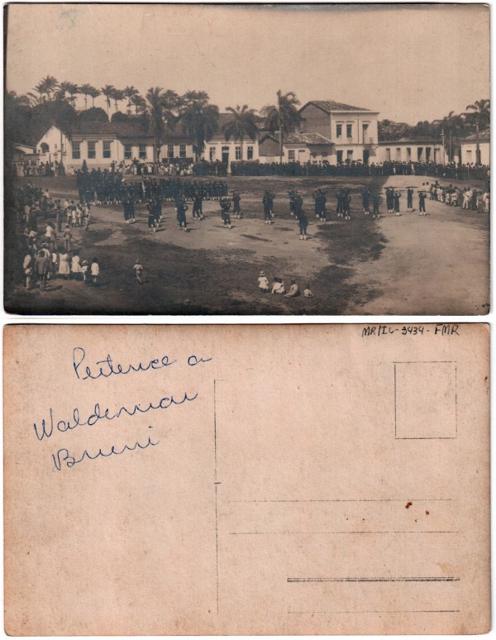 MR/IC-3434-FMR
Pertence a
Waldemar
Bruni